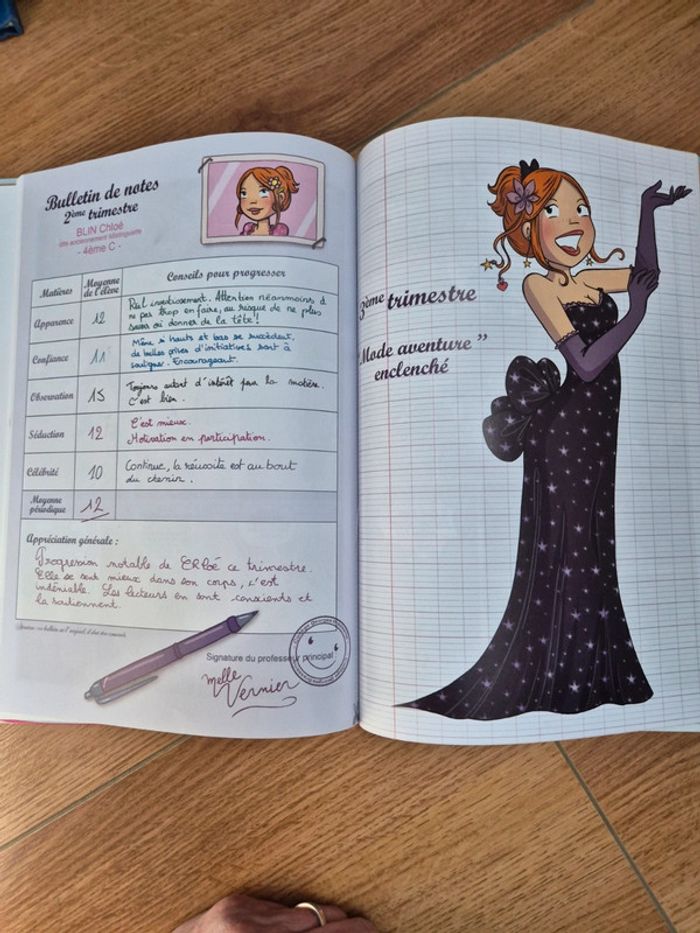 Bulletin de notes
2ème trimestre
BLIN Chloé
dite anciennement Mistinguette
- 4ème C -
Matières
Moyenne
de l'élève
Conseils pour progresser
Apparence
12
Réel investissement. Attention néanmoins à
ne pas trop en faire, au risque de ne plus
savoir où donner de la tête !
Confiance
11
Même si hauts et bas se succèdent,
de belles prises d'initiatives sont à
souligner. Encourageant.
Observation
15
Toujours autant d'intérêt pour la matière.
C'est bien.
Séduction
12
C'est mieux.
Motivation en participation.
Célébrité
10
Continue, la réussite est au bout
du chemin.
Moyenne
périodique
12
Appréciation générale :
Progression notable de Chloé ce trimestre.
Elle se sent mieux dans son corps, c'est
indéniable. Les lecteurs en sont conscients et
la soutiennent.
Signature du professeur principal
Melle
Vernier
3ème trimestre
"Mode aventure"
enclenché